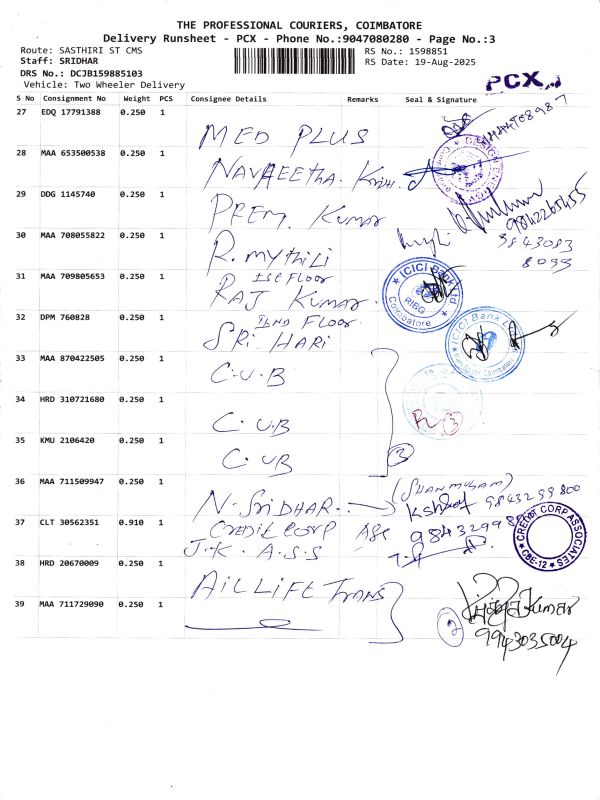 THE PROFESSIONAL COURIERS, COIMBATORE
Delivery Runsheet - PCX - Phone No.:9047080280 - Page No.:3
Route: SASTHIRI ST CMS
RS No.: 1598851
Staff: SRIDHAR
RS Date: 19-Aug-2025
DRS No.: DCJB159885103
Vehicle: Two Wheeler Delivery
PCX
S No Consignment No Weight PCS Consignee Details Remarks Seal & Signature
27 EDQ 17791388 0.250 1
MED PLUS
28 MAA 653500538 0.250 1
29 DDG 1145740 0.250 1
PREM. Kumar
9842265455
30 MAA 708055822 0.250 1
R. mythili
9843083
8099
31 MAA 709805653 0.250 1
Ist Floor
RAJ Kumar.
ICICI Bank Ltd
RIBG
Coimbatore
32 DPM 760828 0.250 1
IInd Floor
SRI. HARI
ICICI Bank
33 MAA 870422505 0.250 1
C.U.B
34 HRD 310721680 0.250 1
C.U.B
35 KMU 2106420 0.250 1
C.UB
3
36 MAA 711509947 0.250 1
(SHANMUGAM)
N. SRIDHAR
9843299800
37 CLT 30562351 0.910 1
CREDIT CORP ASS
J.K. A.S.S
CREDIT CORP ASSOCIATES
CBE-12
38 HRD 20670009 0.250 1
AILLIFE Trans
39 MAA 711729090 0.250 1
2
9943035004